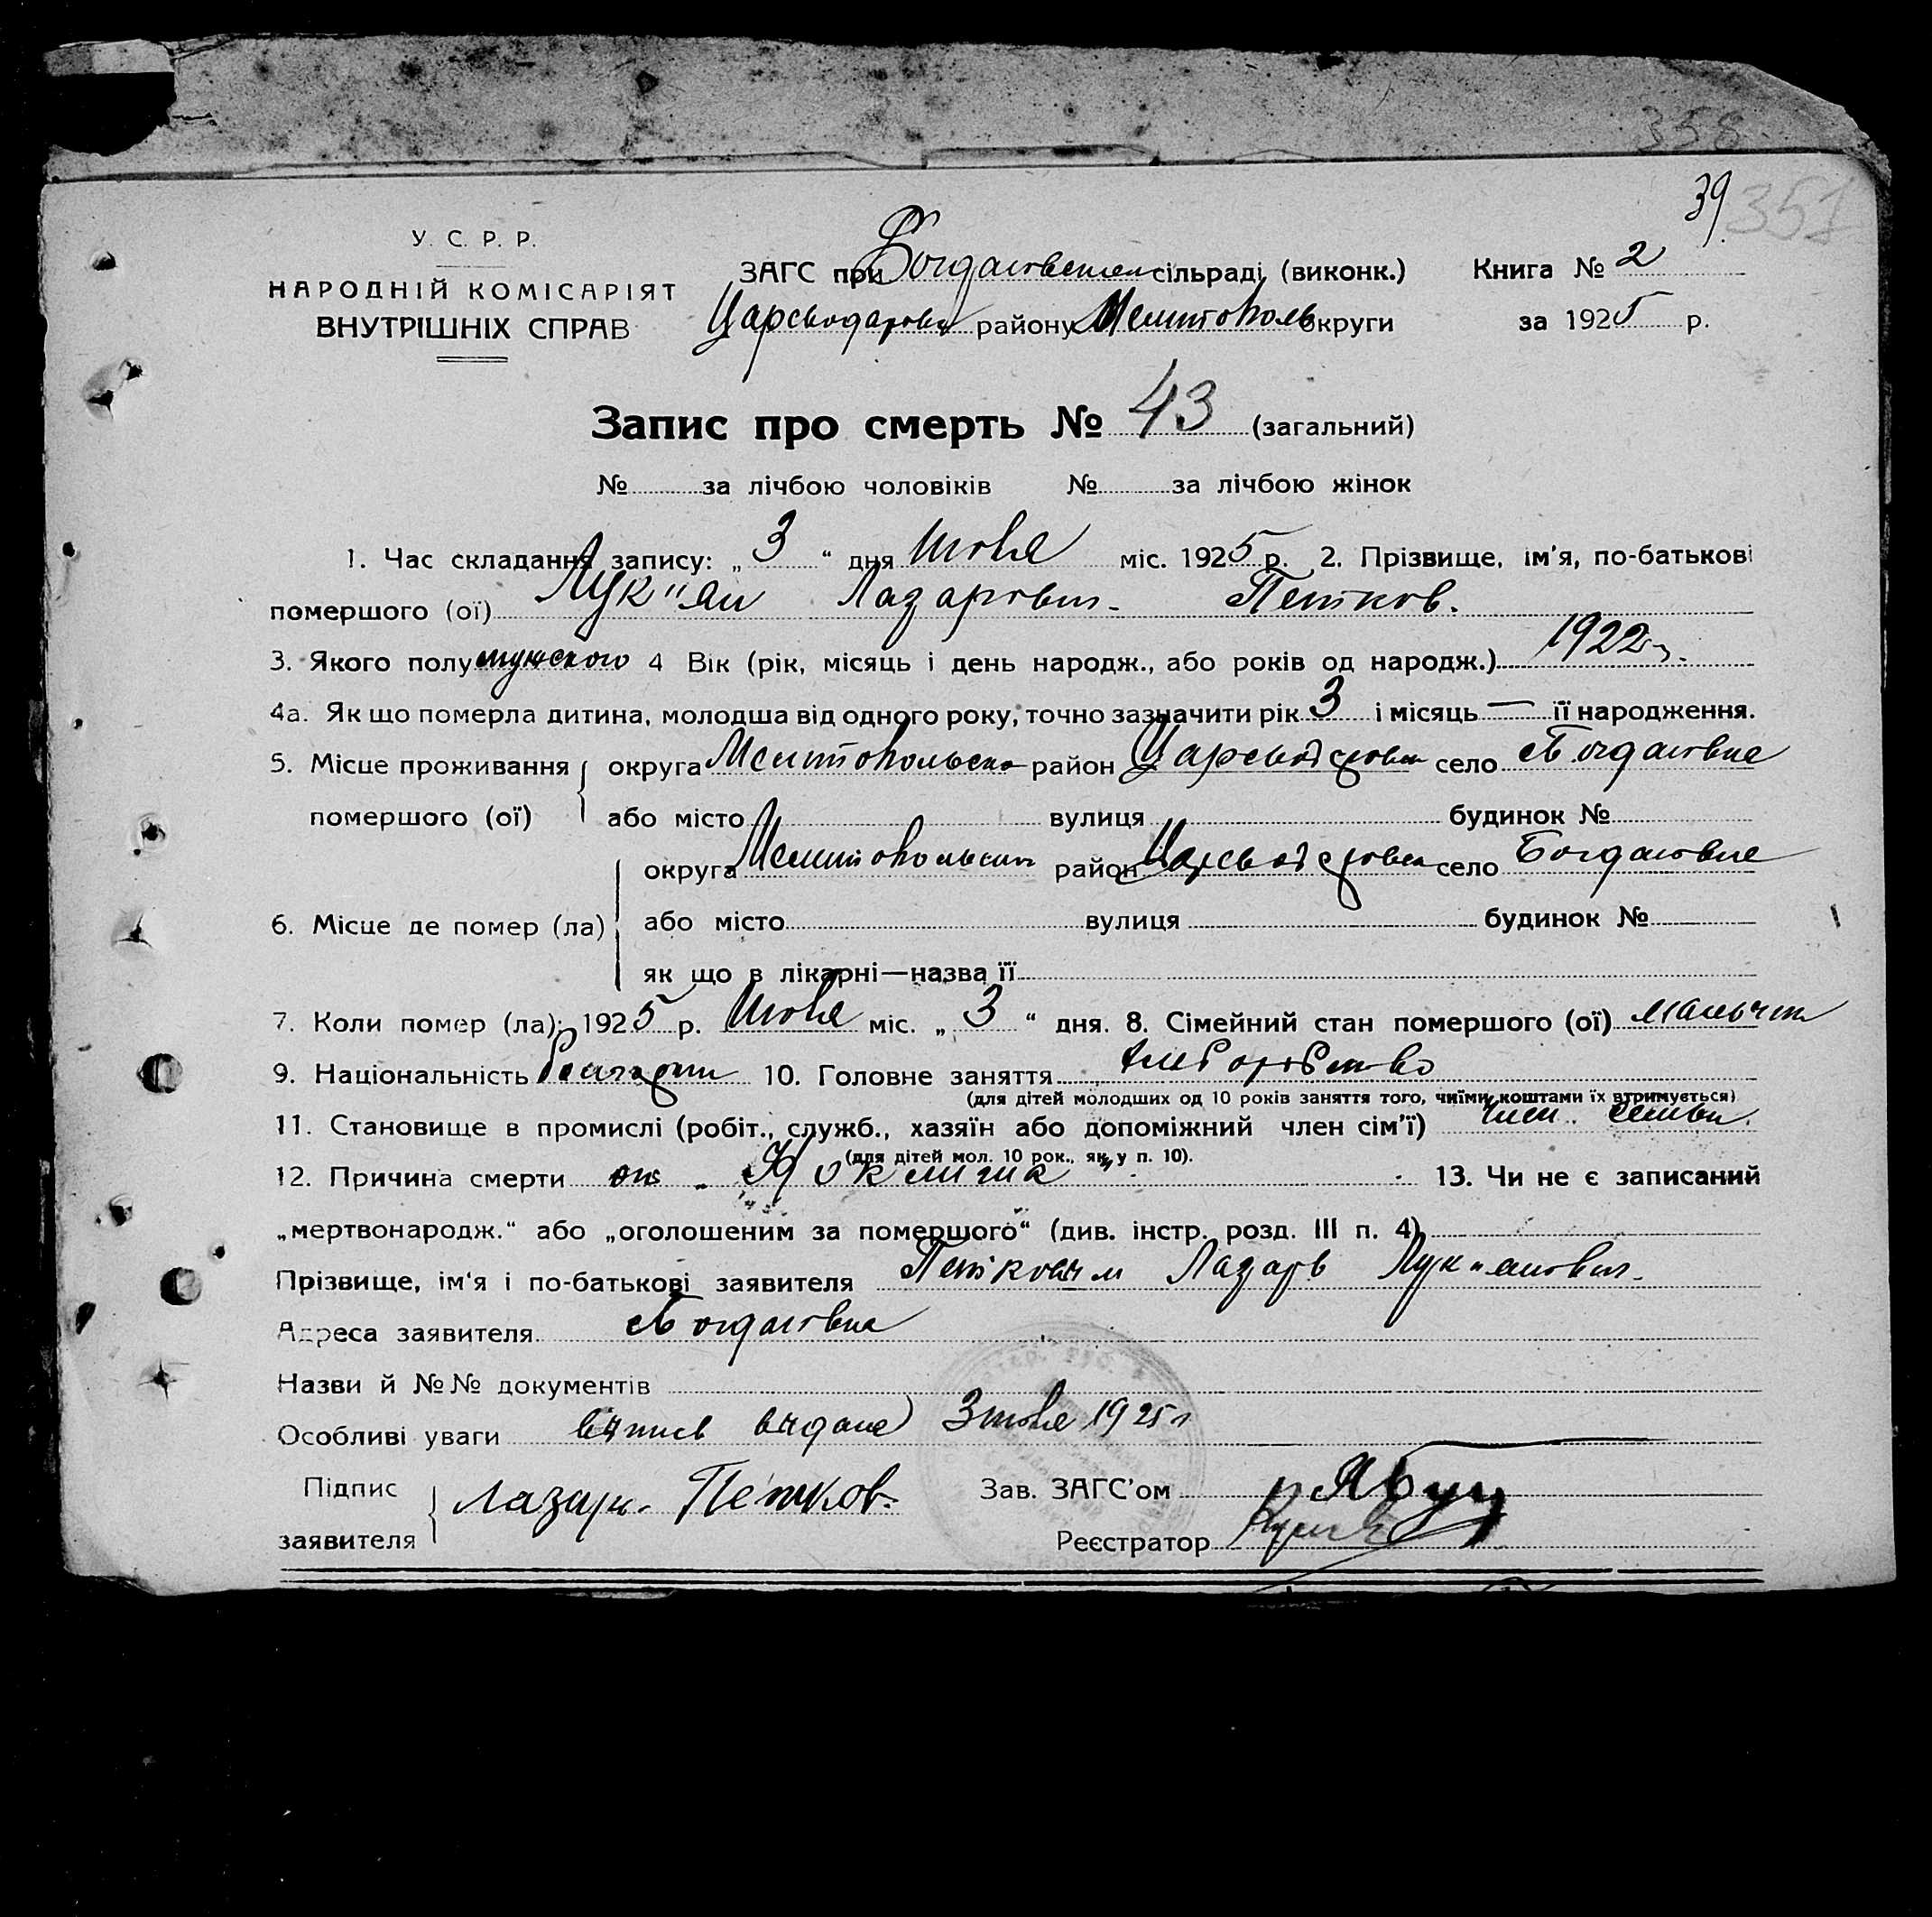 358
39 351
У. С. Р. Р.
НАРОДНІЙ КОМІСАРІЯТ
ВНУТРІШНІХ СПРАВ
ЗАГС при Богдановском сільраді, (виконк.) Книга № 2
району Мелитополь округи за 1925 р.
Запис про смерть № 43 (загальний)
№ за лічбою чоловіків № за лічбою жінок
1. Час складання запису: „ 3 “ дня Июня міс. 1925 р. 2. Прізвище, ім'я, по-батькові
помершого (ої) Лук"ян Лазарович Петков.
3. Якого полу мужского 4 Вік (рік, місяць і день народж., або років од народж.) 1922 г.
4а. Як що померла дитина, молодша від одного року, точно зазначити рік 3 і місяць — її народження.
5. Місце проживання округа Мелитопольск район село Богдановка
помершого (ої) або місто вулиця будинок №
округа Мелитопольск район село Богдановка
6. Місце де помер (ла) або місто вулиця будинок №
як що в лікарні—назва її
7. Коли помер (ла): 1925 р. Июня міс. „ 3 “ дня. 8. Сімейний стан помершого (ої) мальчик
9. Національність болгарин 10. Головне заняття хлеборобство
(для дітей молодших од 10 років заняття того, чиїми коштами їх втримується)
11. Становище в промислі (робіт., служб., хазяїн або допоміжний член сім'ї) член семьи.
(для дітей мол. 10 рок., як у п. 10).
12. Причина смерти от Коклюша 13. Чи не є записаний
„мертвонародж.“ або „оголошеним за помершого“ (див. інстр. розд. III п. 4)
Прізвище, ім'я і по-батькові заявителя Лазарь Лук"янович
Адреса заявителя Богдановка
Назви й №№ документів
Особливі уваги 3 июня 1925 г
Підпис заявителя Лазарь Петков. Зав. ЗАГС'ом
Реєстратор